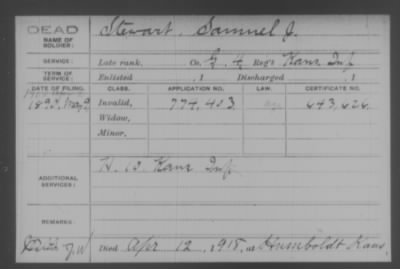 DEAD
NAME OF SOLDIER: Stewart, Samuel J.
SERVICE: Late rank, Co. G. 4 Reg't Kans Inf
TERM OF SERVICE: Enlisted , 1 Discharged , 1
DATE OF FILING. CLASS. APPLICATION NO. LAW. CERTIFICATE NO.
1890, May 9 Invalid, 774,403 643,626
Widow,
Minor,
ADDITIONAL SERVICES: H. 10. Kans Inf
REMARKS:
J.W. Died Apr 12, 1918, at Humboldt Kans